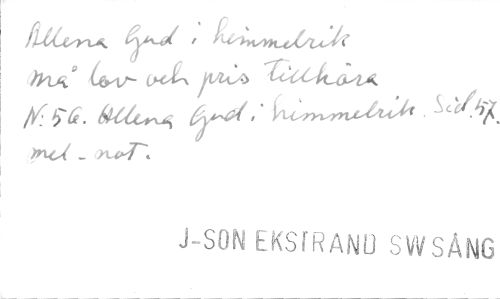 Allena Gud i himmelrik
må lov och pris tillhöra
N: 56. Allena Gud i himmelrik. Sid. 57.
mel-not.
J-SON EKSTRAND SW SÅNG